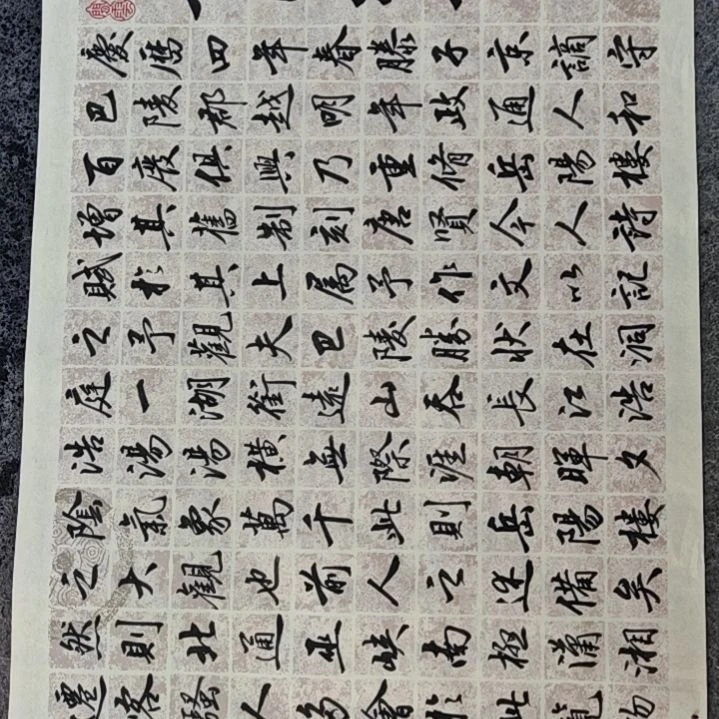 慶曆四年春滕子京謫守
巴陵郡越明年政通人和
百廢俱興乃重脩岳陽樓
增其舊制刻唐賢今人詩
賦於其上属予作文以記
之予觀夫巴陵勝狀在洞
庭一湖銜遠山吞長江浩
浩湯湯橫無際涯朝暉夕
陰氣象萬千此則岳陽樓
之大觀也前人之述備矣
然則北通巫峽南極瀟湘
遷客騷人多會於此覽物